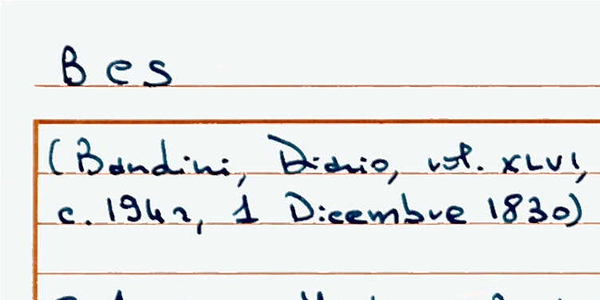 Bes
(Bandini, Diario, vol. XLVI,
c. 194r, 1 Dicembre 1830)